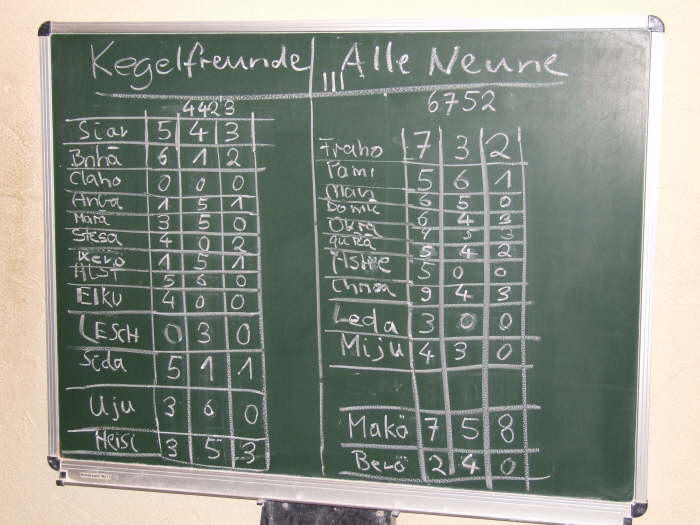 Kegelfreunde
4423
Siar 5 4 3
Briha 6 1 2
Claho 0 0 0
Anba 1 5 1
Mara 3 5 0
Stesa 4 0 2
1 5 1
5 6 0
Elku 4 0 0
LESCH 0 3 0
Sida 5 1 1
Uju 3 6 0
Heisi 3 5 3
Alle Neune
6752
Fraho 7 3 2
Pami 5 6 1
Mavi 6 5 0
6 4 3
3 3
5 4 2
5 0 0
9 4 3
Leda 3 0 0
Miju 4 3 0
Makö 7 5 8
Berö 2 4 0